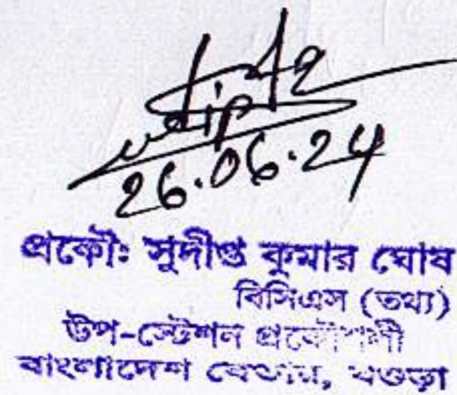 26.06.24
প্রকৌঃ সুদীপ্ত কুমার ঘোষ
বিসিএস (তথ্য)
উপ-স্টেশন প্রকৌশলী
বাংলাদেশ বেতার, বগুড়া